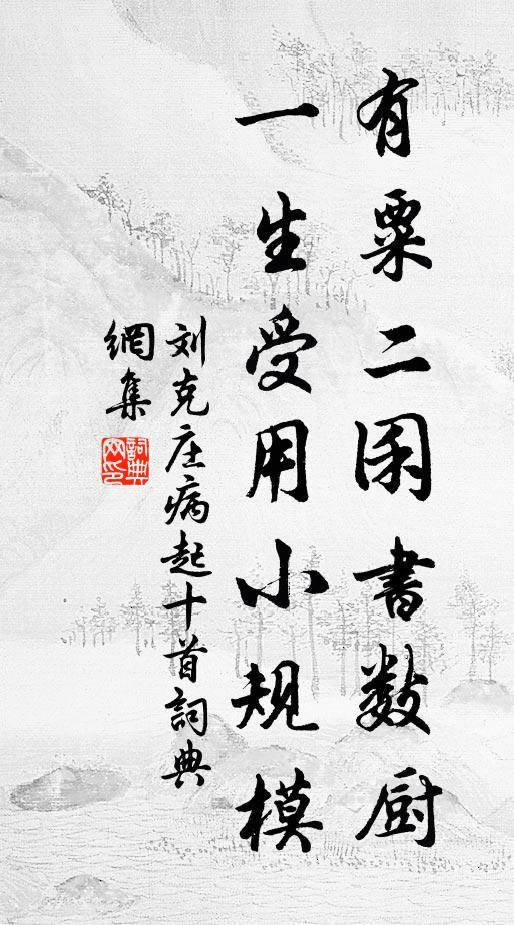 有粟二囷書数厨
一生受用小規模
刘克庄病起十首詞典
網集
詞典
网印